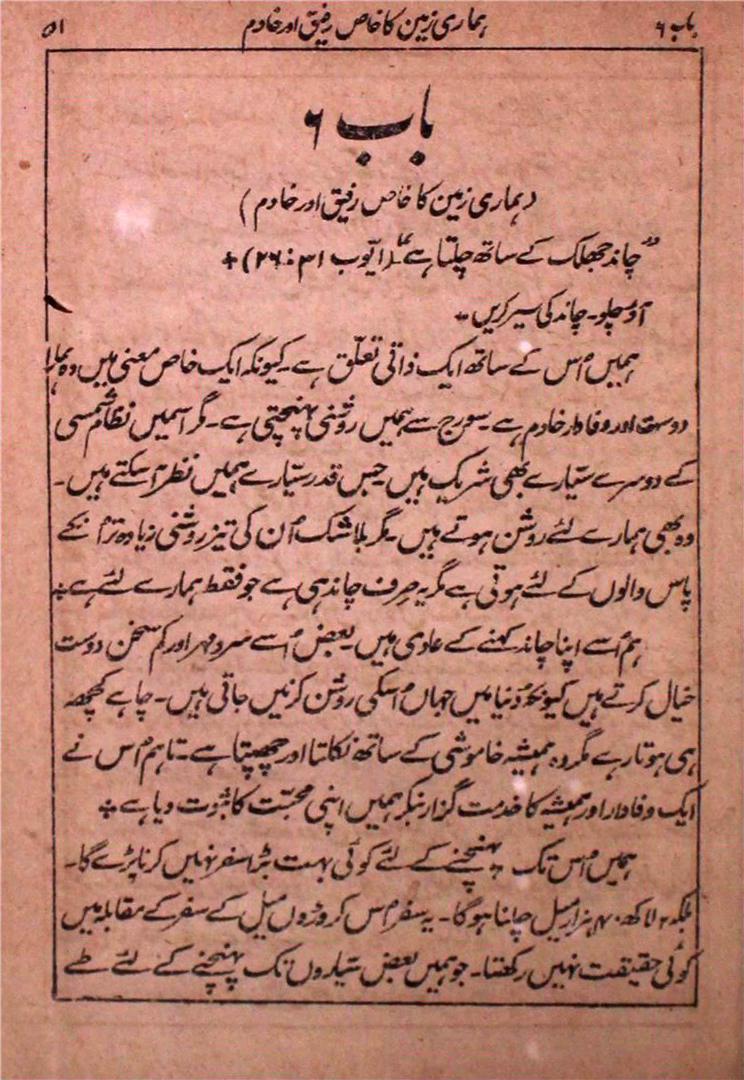 باب ۶ ہماری زمین کا خاص رفیق اور خادم ۵۱
باب ۶
(ہماری زمین کا خاص رفیق اور خادم)
”چاند جھلک کے ساتھ چلتا ہے“۔ (ایّوب ۳۱: ۲۶) +
آؤ چلو۔ چاند کی سیر کریں۔
ہمیں اُس کے ساتھ ایک ذاتی تعلّق ہے۔ کیونکہ ایک خاص معنی میں وہ ہمارا
دوست اور وفادار خادم ہے۔ سورج سے ہمیں روشنی پہنچتی ہے۔ مگر اسمیں نظام شمسی
کے دوسرے سیّارے بھی شریک ہیں۔ جس قدر سیّارے ہمیں نظر آ سکتے ہیں۔
وہ بھی ہمارے لئے روشن ہوتے ہیں۔ مگر بلا شک اُن کی تیز روشنی زیادہ تر اُنکے
پاس والوں کے لئے ہوتی ہے مگر یہ صرف چاند ہی ہے جو فقط ہمارے لئے ہے +
ہم اُسے اپنا چاند کہنے کے عادی ہیں۔ بعض اُسے سرد مہر اور کم سخن دوست
خیال کرتے ہیں کیونکہ دُنیا میں جہاں اُسکی روشن کرنیں جاتی ہیں۔ چاہے کچھ
ہی ہوتا رہے مگر وہ ہمیشہ خاموشی کے ساتھ نکلتا اور چھپتا ہے۔ تاہم اُس نے
ایک وفادار اور ہمیشہ کا خدمت گزار بنکر ہمیں اپنی محبّت کا ثبوت دیا ہے +
ہمیں اُس تک پہنچنے کے لئے کوئی بہت بڑا سفر نہیں کرنا پڑے گا۔
بلکہ ۲ لاکھ ۴۰ ہزار میل جانا ہوگا۔ یہ سفر اُس کروڑوں میل کے سفر کے مقابلہ میں
کوئی حقیقت نہیں رکھتا۔ جو ہمیں بعض سیّاروں تک پہنچنے کے لئے طے